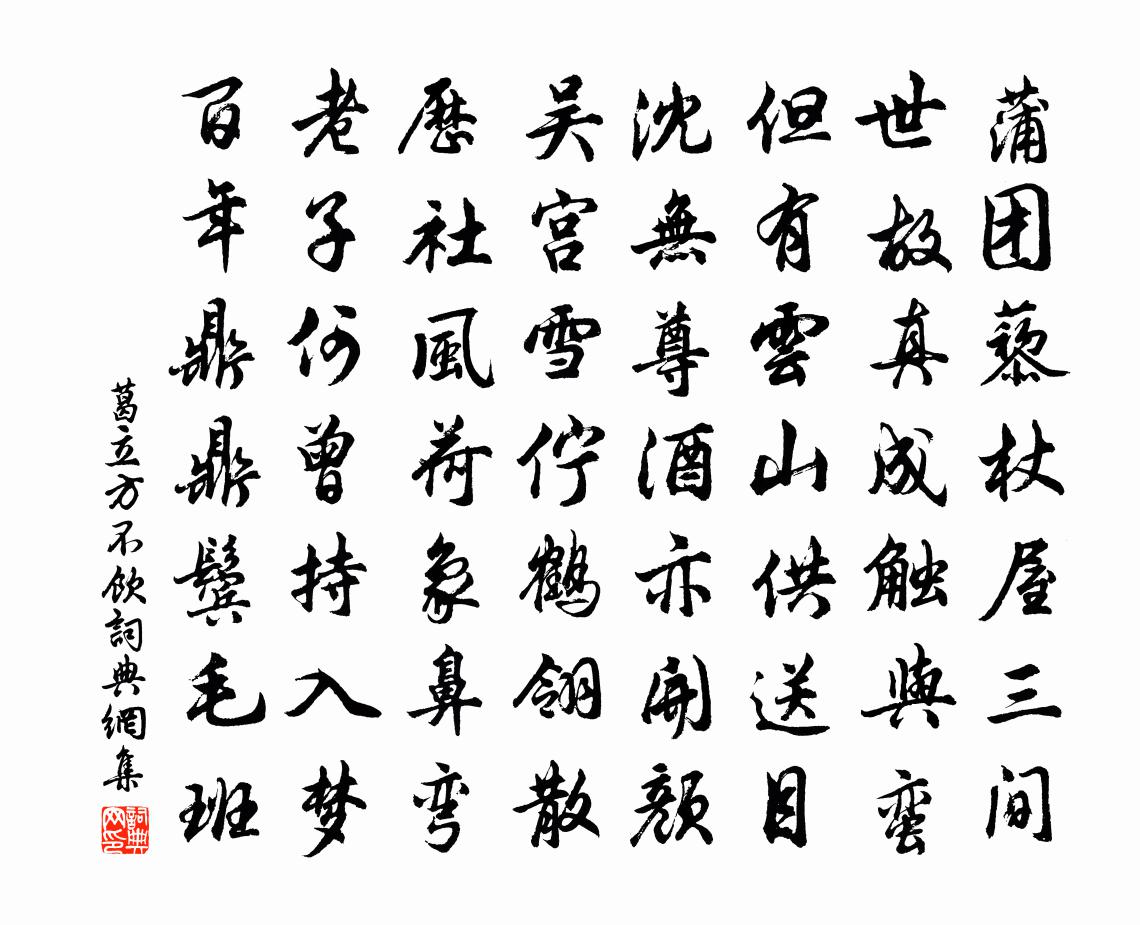 蒲团藜杖屋三间
世故真成触與蛮
但有雲山供送目
沈無尊酒亦開颜
吴宫雪佇鶴翎散
歷社風荷象鼻弯
老子何曾持入梦
百年鼎鼎鬓毛班
葛立方不飲詞典網集
詞典网印